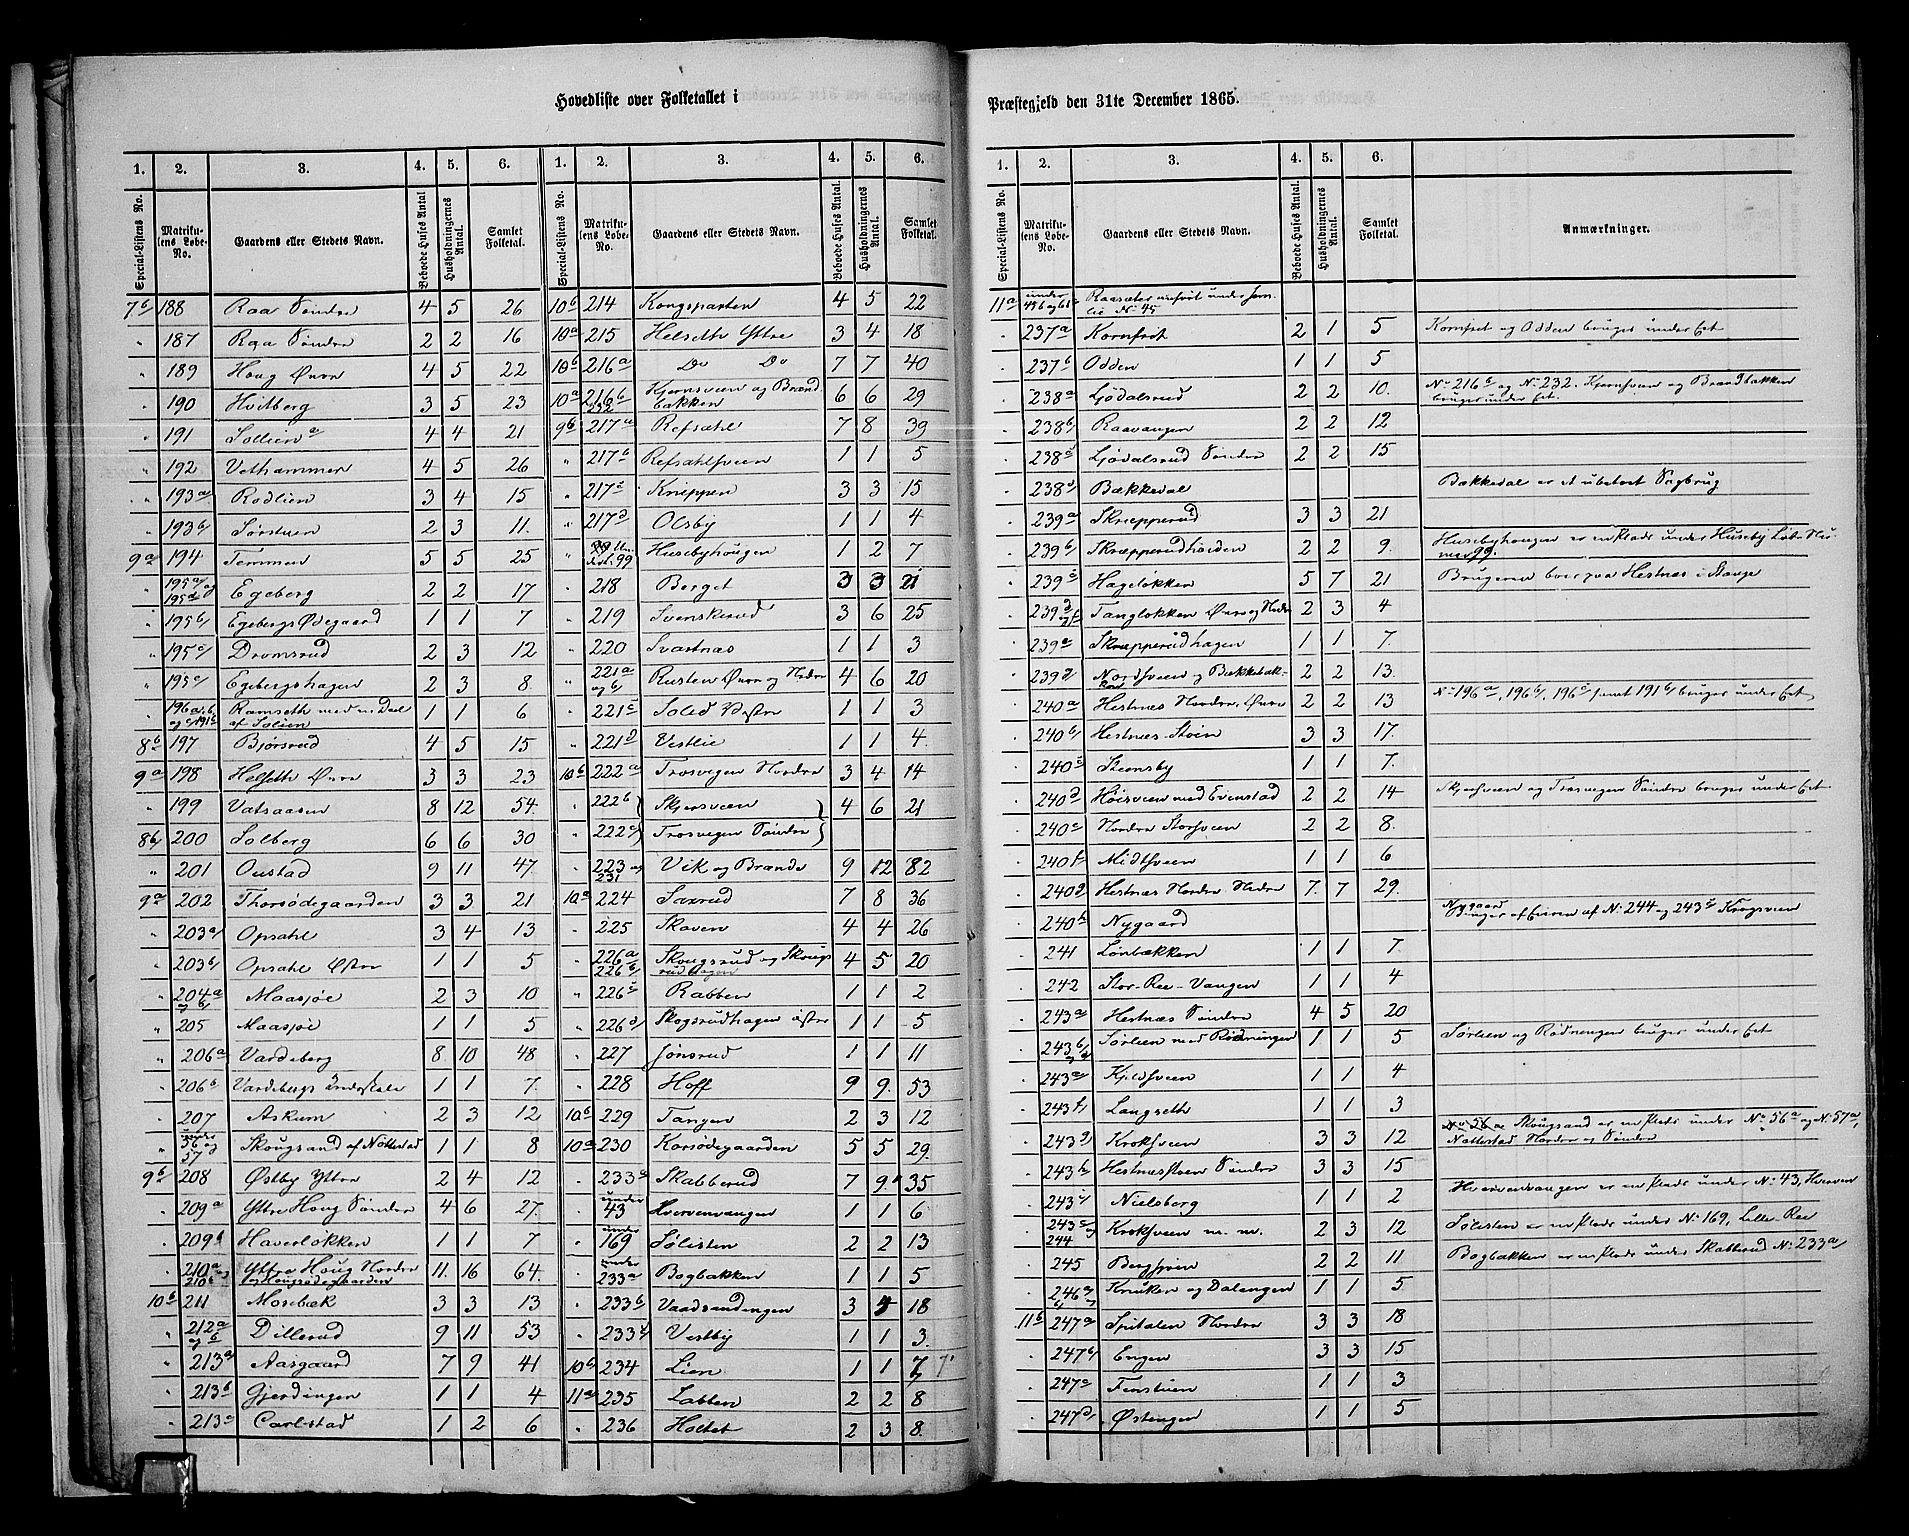 Hovedliste over Folketallet i
Præstegjeld den 31te December 1865.
1. 2. 3. 4. 5. 6. 1. 2. 3. 4. 5. 6.
Special-Listens No. Matrikulens Løbe-No. Gaardens eller Stedets Navn. Beboede Huses Antal Husholdningernes Antal. Samlet Folketal. Special-Listens No. Matrikulens Løbe-No. Gaardens eller Stedets Navn. Beboede Huses Antal. Husholdningernes Antal. Samlet Folketal.
7b 188 Raa Søndre 4 5 26
" 187 Raa Søndre 2 2 16
" 189 Houg Øvre 4 5 22
" 190 Hvitberg 3 5 23
" 191 Sollien a 4 4 21
" 192 Vethammer 4 5 26
" 193a Rodlien 3 4 15
" 193b Sørstuen 2 3 11.
9a 194 Temmen 5 5 25
" 195a og 195d Egeberg 2 2 17
" 195b Egebergs Ødegaard 1 1 7
" 195c Dromsrud 2 3 12
" 195e Egebergshagen 2 3 8.
" 196a,b og c/191b Ramseth med en Deel af Solien 1 1 6
8b 197 Bjørsrud 4 5 15
9a 198 Helseth Øvre 3 3 23
" 199 Vatsaasen 8 12 54.
8b 200 Solberg 6 6 30
" 201 Oustad 9 11 47
9a 202 Thorsødegaarden 3 3 21
" 203a Opsahl 3 4 13
" 203b Opsahl Østre 1 1 5
" 204a og b Maasjøe 2 3 10
" 205 Maasjøe 1 1 5
" 206a Vardeberg 8 10 48
" 206b Vardebergs 1 1 7.
" 207 Askum 2 3 12
" under 56 og 57 Skougsand af Nøttestad 1 1 8
9b 208 Østby Yttre 2 4 12
" 209a Yttre Houg Søndre 4 6 27.
" 209b Haverløkken 1 1 7
" 210a og 210b Yttre Houg Nordre og Hougsødegaarden 11. 16 64.
10b 211 Mosebæk 3 3 13
" 212a og b Dillerud 9 11 53
" 213a Aasgaard 7 9 41
" 213b Gjerdingen 1 1 4
" 213c Carlstad 1 2 6
10b 214 Kongsparten 4 5 22
10a 215 Helseth Yttre 3 4 18
10b 216a Do Do 7 7 40
10a 216b 232 Kjernsveen og Brændbakken 6 6 29
9b 217a Refsahl 7 8 39
" 217b Refsahlsveen 1 1 5
" 217c Knippen 3 3 15
" 217d Olsby 1 1 4
" 99 Husebyhougen 1 2 7
" 218 Berget 3 3 21
" 219 Svenskerud 3 6 25
" 220 Svastnæs 1 1 3
" 221a og b Rusten Øvre og Nedre 4 6 20
" 221c Soled Vestre 1 1 3
" 221d Vestlie 1 1 4.
10b 222a Trosvigen Nordre 3 4 14
" 222b Skjersveen 4 6 21
" 222c Trosvigen Søndre
" 223 og 231 Vik og Brænde 9 12 82
10a 224 Saxrud 7 8 36
" 225 Skoven 4 4 26
" 226a 226b Skougsrud og Skougsrudhagen 4 5 20
" 226c Rabben 1 1 2
" 226d Skogsrudhagen østre 1 1 5
" 227 Jønsrud 1 1 11
" 228 Hoff 9 9. 53
10b 229 Tangen 2 3 12
10a 230 Korsødegaarden 5 5 29.
" 233a Skabberud 7 9. 35
" under 43 Hvervenvangen 1 1 6
" under 169 Sølisten 2 2 13
" under 233a Bogbakken 1 1 5
" 233b Vaadsandengen 3 4 18
" 233c Vestby 1 1 3.
10b 234 Lien 1 1 7
11a 235 Labben 2 2 8
" 236 Holtet 2 3 8.
1. 2. 3. 4. 5. 6.
Special-Listens No. Matrikulens Løbe-No. Gaardens eller Stedets Navn. Beboede Huses Antal. Husholdningernes Antal. Samlet Folketal. Anmærkninger.
11a under Raasæter anført under No 45
" 237a Kornfrøt 2 1 5 Kornfrøt og Odden bruges under Eet
" 237b Odden 1 1 5
" 238a Ljødalsrud 2 2 10. No 216b og No 232. Kjernsveen og Brændbakken bruges under Eet.
" 238b Raavangen 2 2 12
" 238c Ljødalsrud Søndre 2 2 15
" 238d Bækkedal Bækkedal er et ubeboet Sagbrug
" 239a Skræpperud 3 3 21
" 239b Skræpperudhøiden 2 2 9. Husebyhougen er en Plads under Huseby Løbe-Nummer 99.
" 239c Hageløkken 5 7 21 Brugeren boer paa Hestnæs i Stange
" 239d og f Tangløkken Øvre og Nedre 2 3 4
" 239e Skræpperudhagen 1 1 7.
" 239g Nordsveen og Bækkebakken 2 2 13.
" 240a Hestnæs Nordre, Øvre 2 2 13 No 196a, 196b, 196c samt 191b bruges under Eet
" 240b Hestnæs-Støen 3 3 17.
" 240c Steensby 1 1 7.
" 240d Høisveen med Evenstad 2 2 14 Skjersveen og Trosvigen Søndre bruges under Eet
" 240e Nordre Storsveen 2 2 8.
" 240f Midtsveen 1 1 6
" 240g Hestnæs Nordre Nedre 7. 7 29.
" 240h Nygaard Nygaard Bruges af Eieren af No 244 og 243 Krogsveen
" 241 Lønbækken 1 1 7.
" 242 Stor-Ree-Vangen 1 1 4
" 243a Hestnæs Søndre 4 5 20
" 243b og d Sørlien med Rødningen 1 1 5 Sørlien og Rødningen bruges under Eet
" 243e Kjeldsveen 1 1 4
" 243f Langseth 1 1 3
" 243g Kroksveen 3 3 12 Skougsand er en Plads under No 56a og No 57a, Nøttestad Nordre og Søndre
" 243h Hestnæssveen Søndre 3 3 15
" 243i Nielsborg 1 1 2 Hvervenvangen er en Plads under No 43, Hverven
" 243c og 244 Kroksveen m. m. 2 3 12 Sølisten er en Plads under No 169, Lille-Ree
" 245 Bergsveen 2 2 11 Bogbakken er en Plads under Skabberud No 233a
" 246a og b Kruken og Dalengen 1 1 5
11b 247a Spitalen Nordre 3 3 18
" 247b Engen 3 3 15
" 247c Finstuen 1 1 3
" 247d Østengen 1 1 5